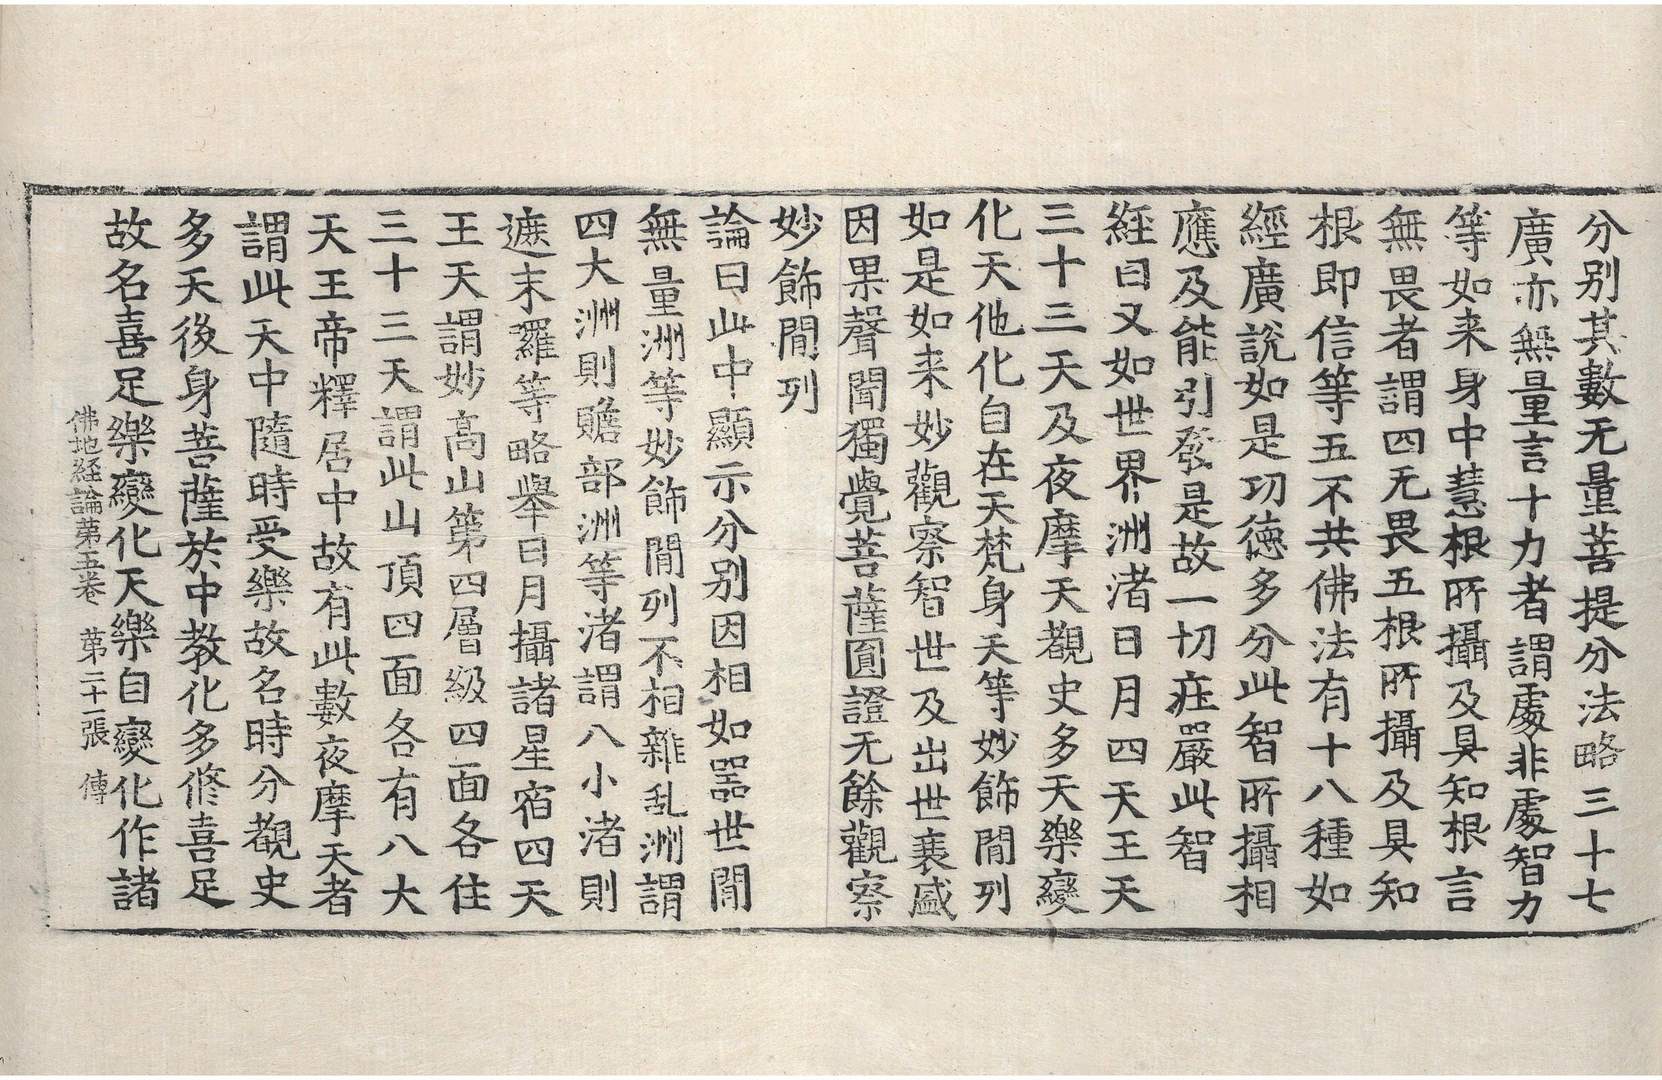 分别其數无量菩提分法略三十七
廣亦無量言十力者謂處非處智力
等如来身中慧根所攝及具知根言
無畏者謂四无畏五根所攝及具知
根即信等五不共佛法有十八種如
經廣說如是功德多分此智所攝相
應及能引發是故一切莊嚴此智
經曰又如世界洲渚日月四天王天
三十三天及夜摩天覩史多天樂變
化天他化自在天梵身天等妙飾間列
如是如来妙觀察智世及出世衰盛
因果聲聞獨覺菩薩圓證无餘觀察
妙飾間列
論曰此中顯示分别因相如器世間
無量洲等妙飾間列不相雜乱洲謂
四大洲則贍部洲等渚謂八小渚則
遮末羅等略舉日月攝諸星宿四天
王天謂妙高山第四層級四面各住
三十三天謂此山頂四面各有八大
天王帝釋居中故有此數夜摩天者
謂此天中隨時受樂故名時分覩史
多天後身菩薩於中教化多修喜足
故名喜足樂變化天樂自變化作諸
佛地経論第五卷 第二十一張 傳